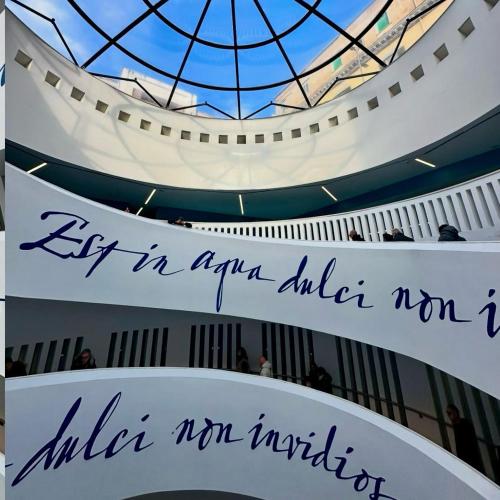 Est in aqua dulci non i
dulci non invidios